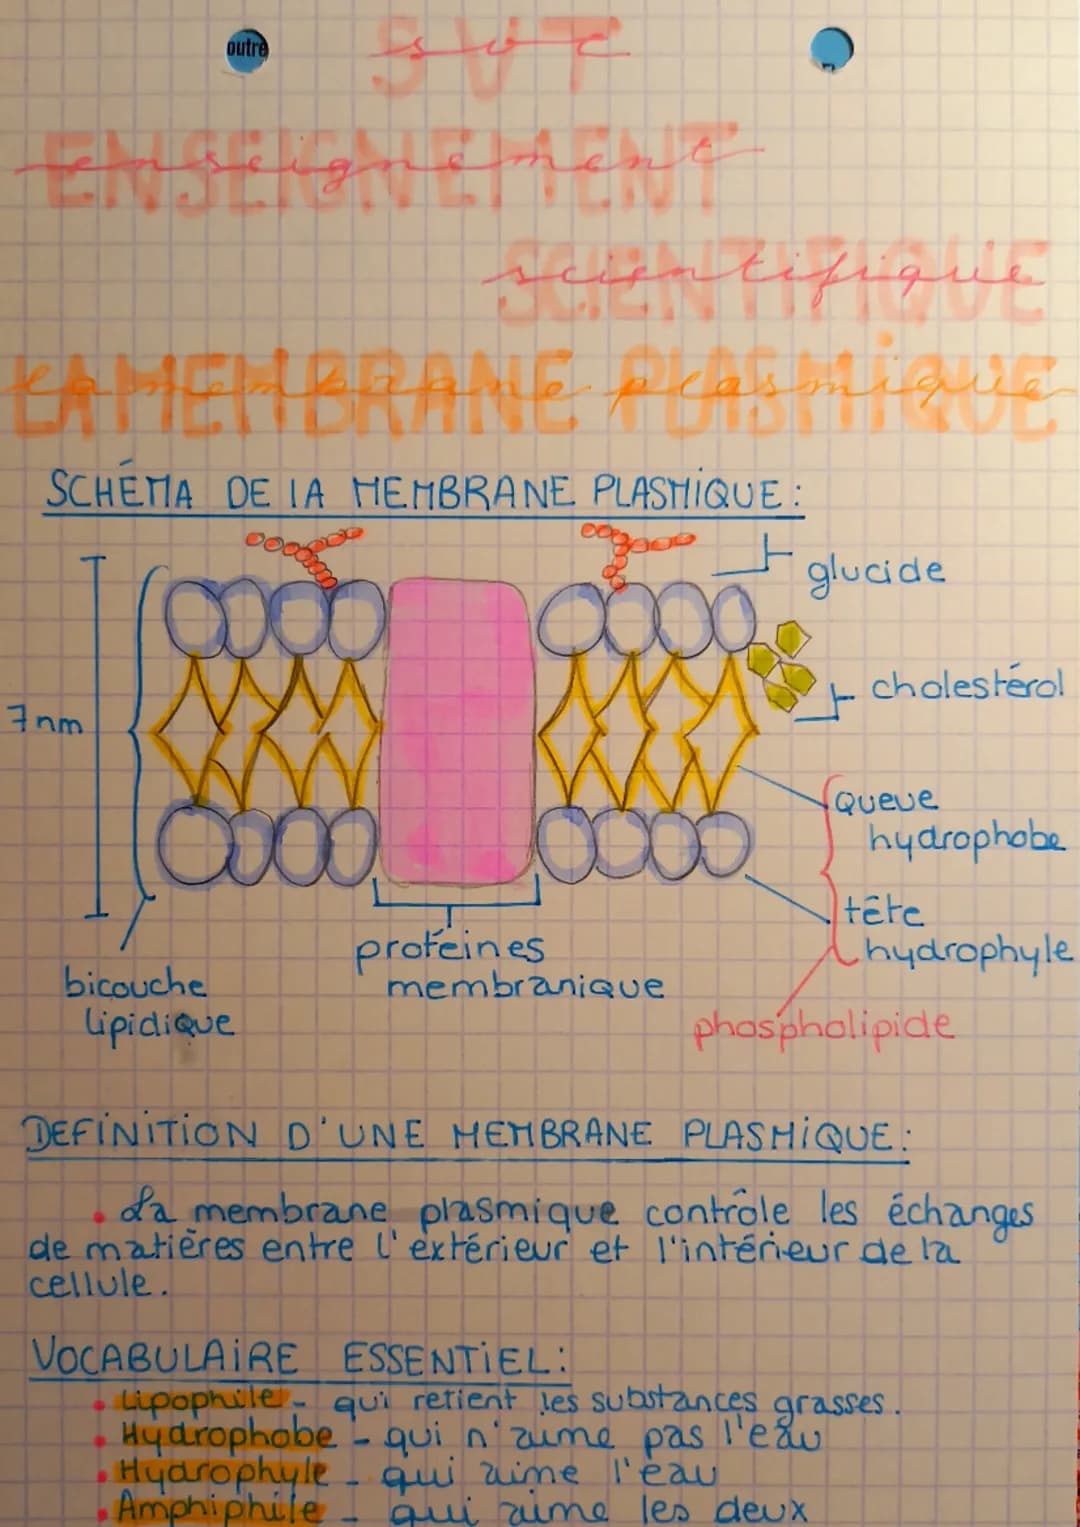 outre
SVT
ENSEIGNEMENT
SCIENTIFIQUE
LA MEMBRANE PLASMIQUE
SCHÉMA DE LA MEMBRANE PLASMIQUE :
glucide
cholestérol
7nm
queue
hydrophobe
tête
hydrophyle
protéines
membranique
bicouche
lipidique
phospholipide
DEFINITION D'UNE MEMBRANE PLASMIQUE :
• La membrane plasmique contrôle les échanges
de matières entre l'extérieur et l'intérieur de la
cellule.
VOCABULAIRE ESSENTIEL :
• Lipophile - qui retient les substances grasses.
• Hydrophobe - qui n'aime pas l'eau
• Hydrophyle - qui aime l'eau
• Amphiphile - qui aime les deux